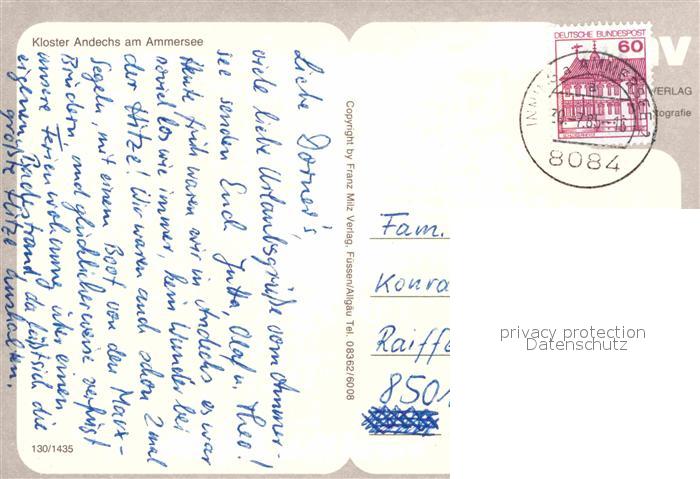 Kloster Andechs am Ammersee
Liebe Dorner's,
viele liebe Urlaubsgrüße vom Ammer-
see senden Euch Jutta, Olaf u. Theo!
Heute früh waren wir in Andechs es war
soviel los wie immer, kein Wunder bei
der Hitze! Wir waren auch schon 2 mal
Segeln, mit einem Boot von den Marx-
Brüdern und glücklicherweise verfügt
unsere Ferienwohnung über einen
eigenen Badestrand, da läßt sich die
größte Hitze aushalten.
130/1435
Copyright by Franz Milz Verlag, Füssen/Allgäu Tel. 08362/6008
DEUTSCHE BUNDESPOST
60
VERLAG
8084
Fam.
Konra
Raiffe
8501
privacy protection
Datenschutz